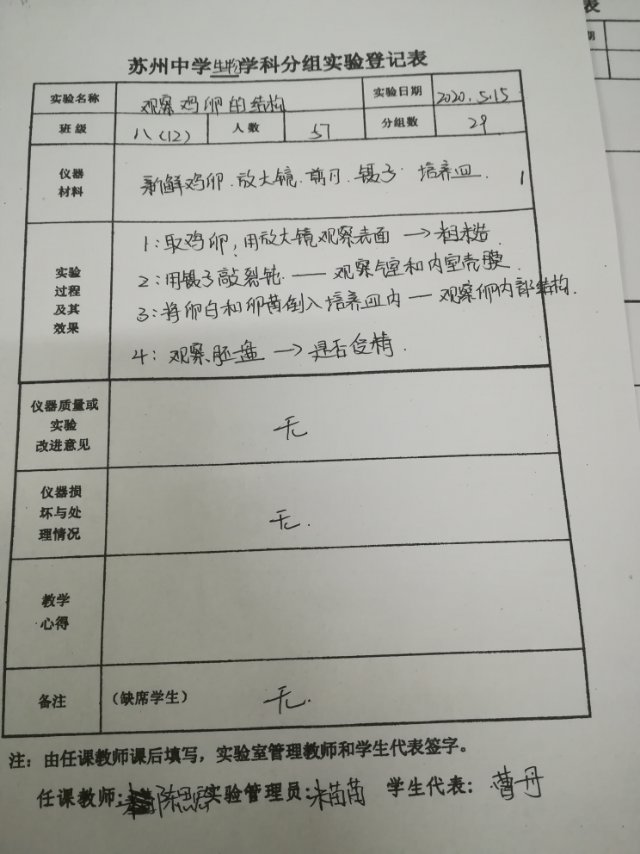 苏州中学生物学科分组实验登记表
实验名称 观察鸡卵的结构 实验日期 2020.5.15
班级 八(12) 人数 57 分组数 29
仪器材料 新鲜鸡卵.放大镜.剪刀.镊子 培养皿.
实验过程及其效果
1:取鸡卵,用放大镜观察表面→粗糙
2:用镊子敲裂钝——观察气室和内室壳膜
3:将卵白和卵黄倒入培养皿内—观察卵内部结构.
4:观察胚盘→是否受精.
仪器质量或实验改进意见 无
仪器损坏与处理情况 无.
教学心得
备注 (缺席学生) 无.
注:由任课教师课后填写,实验室管理教师和学生代表签字。
任课教师: 陈 实验管理员:朱苗苗 学生代表:曹丹
表
期